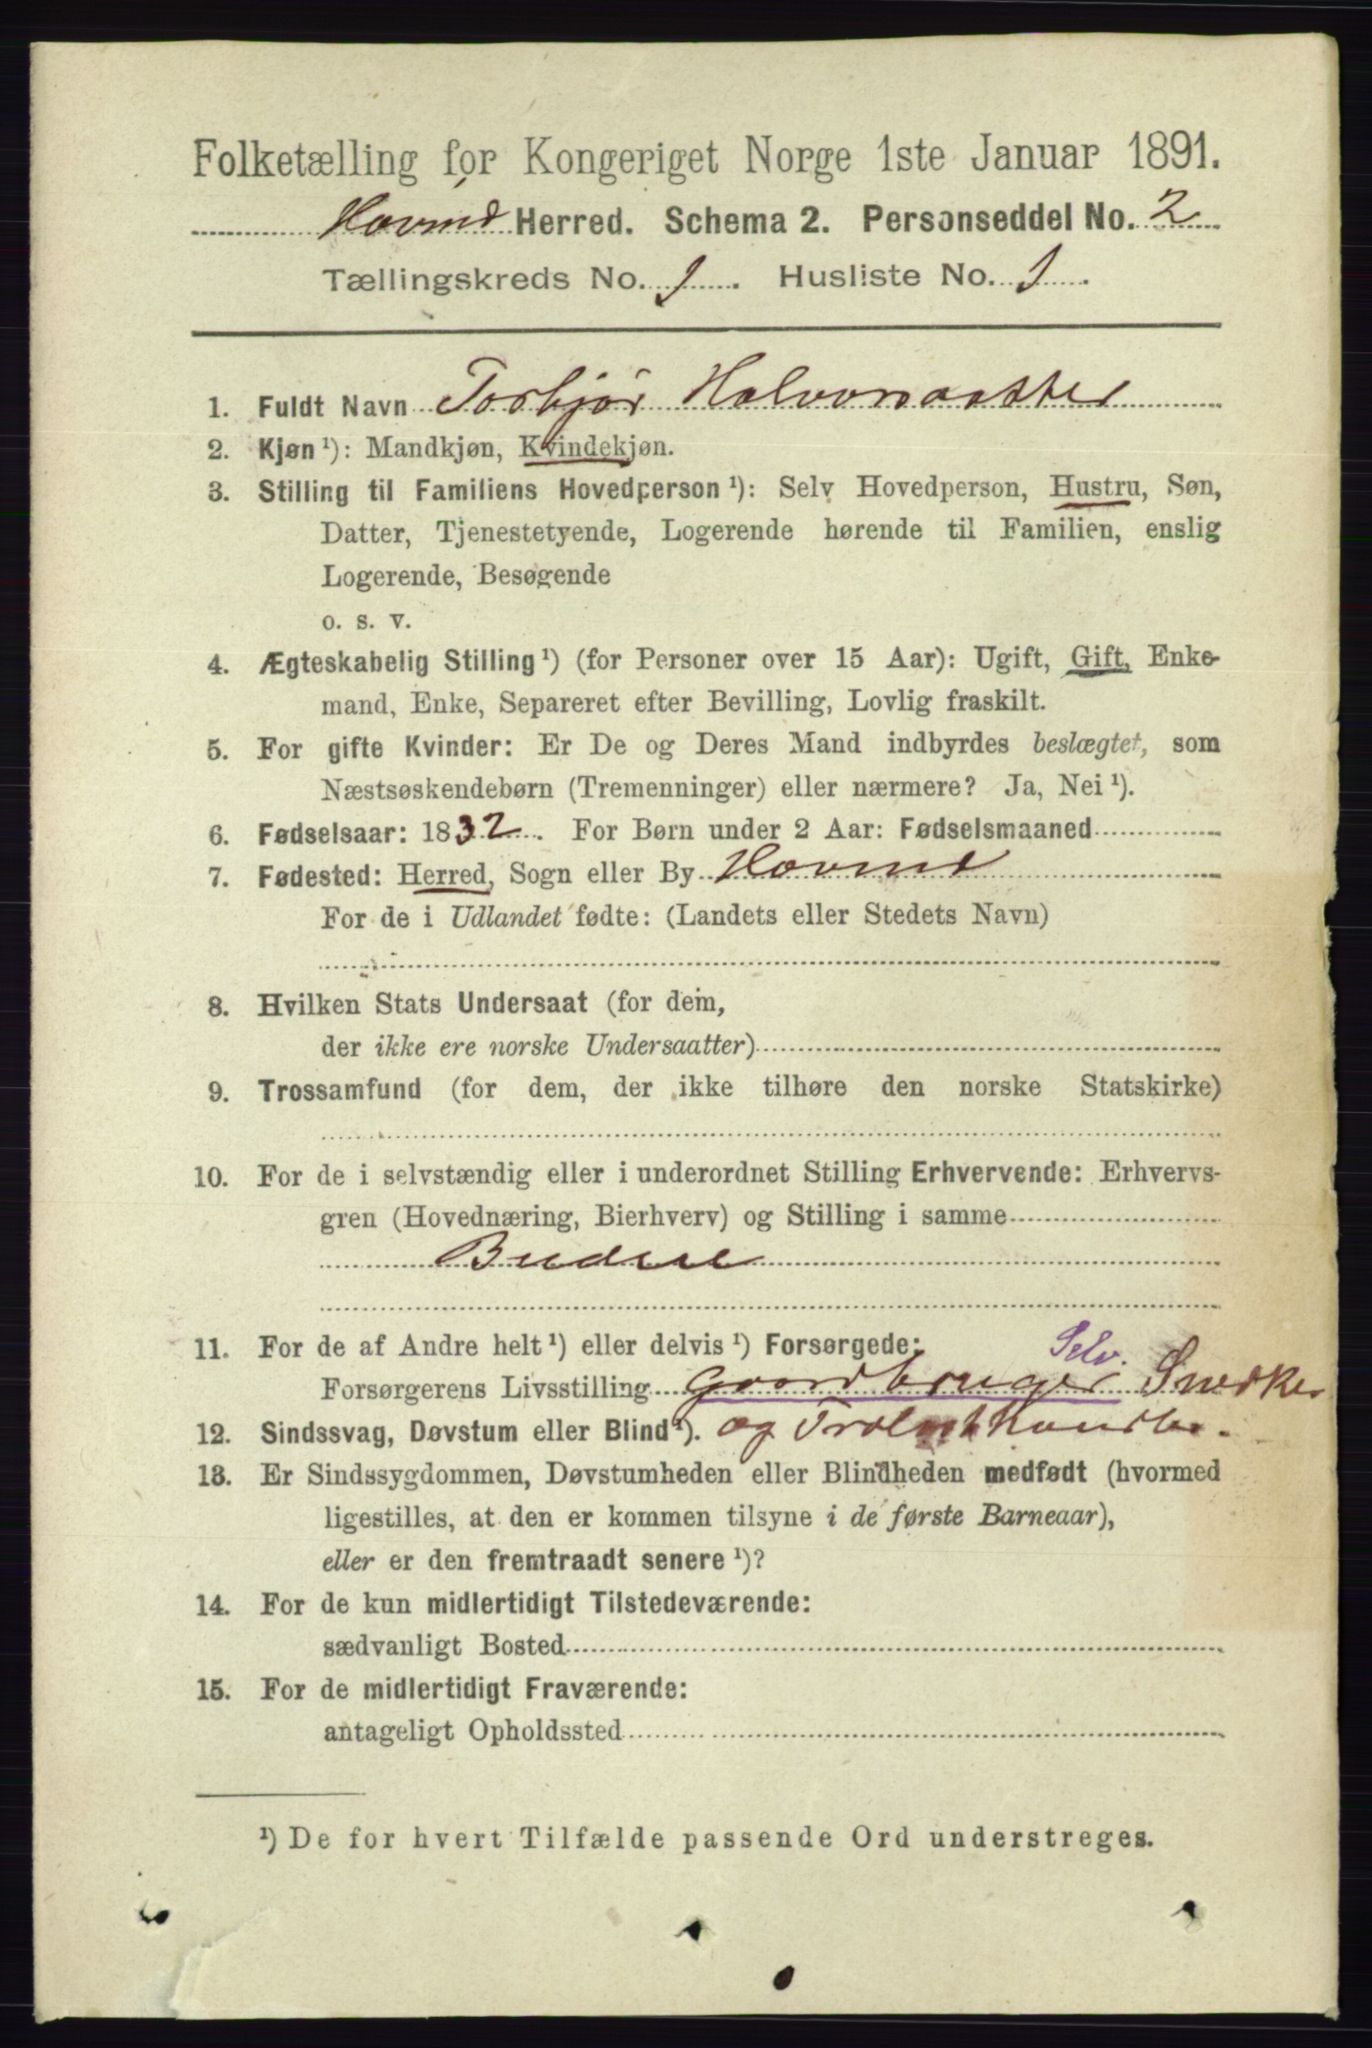 Folketælling for Kongeriget Norge 1ste Januar 1891.
Hovind Herred. Schema 2. Personseddel No. 2
Tællingskreds No. 1. Husliste No. 1.
1. Fuldt Navn Torbjør Halvorsdatter
2. Kjøn ¹): Mandkjøn, Kvindekjøn.
3. Stilling til Familiens Hovedperson ¹): Selv Hovedperson, Hustru, Søn,
Datter, Tjenestetyende, Logerende hørende til Familien, enslig
Logerende, Besøgende
o. s. v.
4. Ægteskabelig Stilling ¹) (for Personer over 15 Aar): Ugift, Gift, Enke-
mand, Enke, Separeret efter Bevilling, Lovlig fraskilt.
5. For gifte Kvinder: Er De og Deres Mand indbyrdes beslægtet, som
Næstsøskendebørn (Tremenninger) eller nærmere? Ja, Nei ¹).
6. Fødselsaar: 1832. For Børn under 2 Aar: Fødselsmaaned
7. Fødested: Herred, Sogn eller By Hovind
For de i Udlandet fødte: (Landets eller Stedets Navn)
8. Hvilken Stats Undersaat (for dem,
der ikke ere norske Undersaatter)
9. Trossamfund (for dem, der ikke tilhøre den norske Statskirke)
10. For de i selvstændig eller i underordnet Stilling Erhvervende: Erhvervs-
gren (Hovednæring, Bierhverv) og Stilling i samme
Budeie
11. For de af Andre helt ¹) eller delvis ¹) Forsørgede:
Selv.
Forsørgerens Livsstilling Gaardbruger Snedker
12. Sindssvag, Døvstum eller Blind ¹). og
13. Er Sindssygdommen, Døvstumheden eller Blindheden medfødt (hvormed
ligestilles, at den er kommen tilsyne i de første Barneaar),
eller er den fremtraadt senere ¹)?
14. For de kun midlertidigt Tilstedeværende:
sædvanligt Bosted
15. For de midlertidigt Fraværende:
antageligt Opholdssted
¹) De for hvert Tilfælde passende Ord understreges.